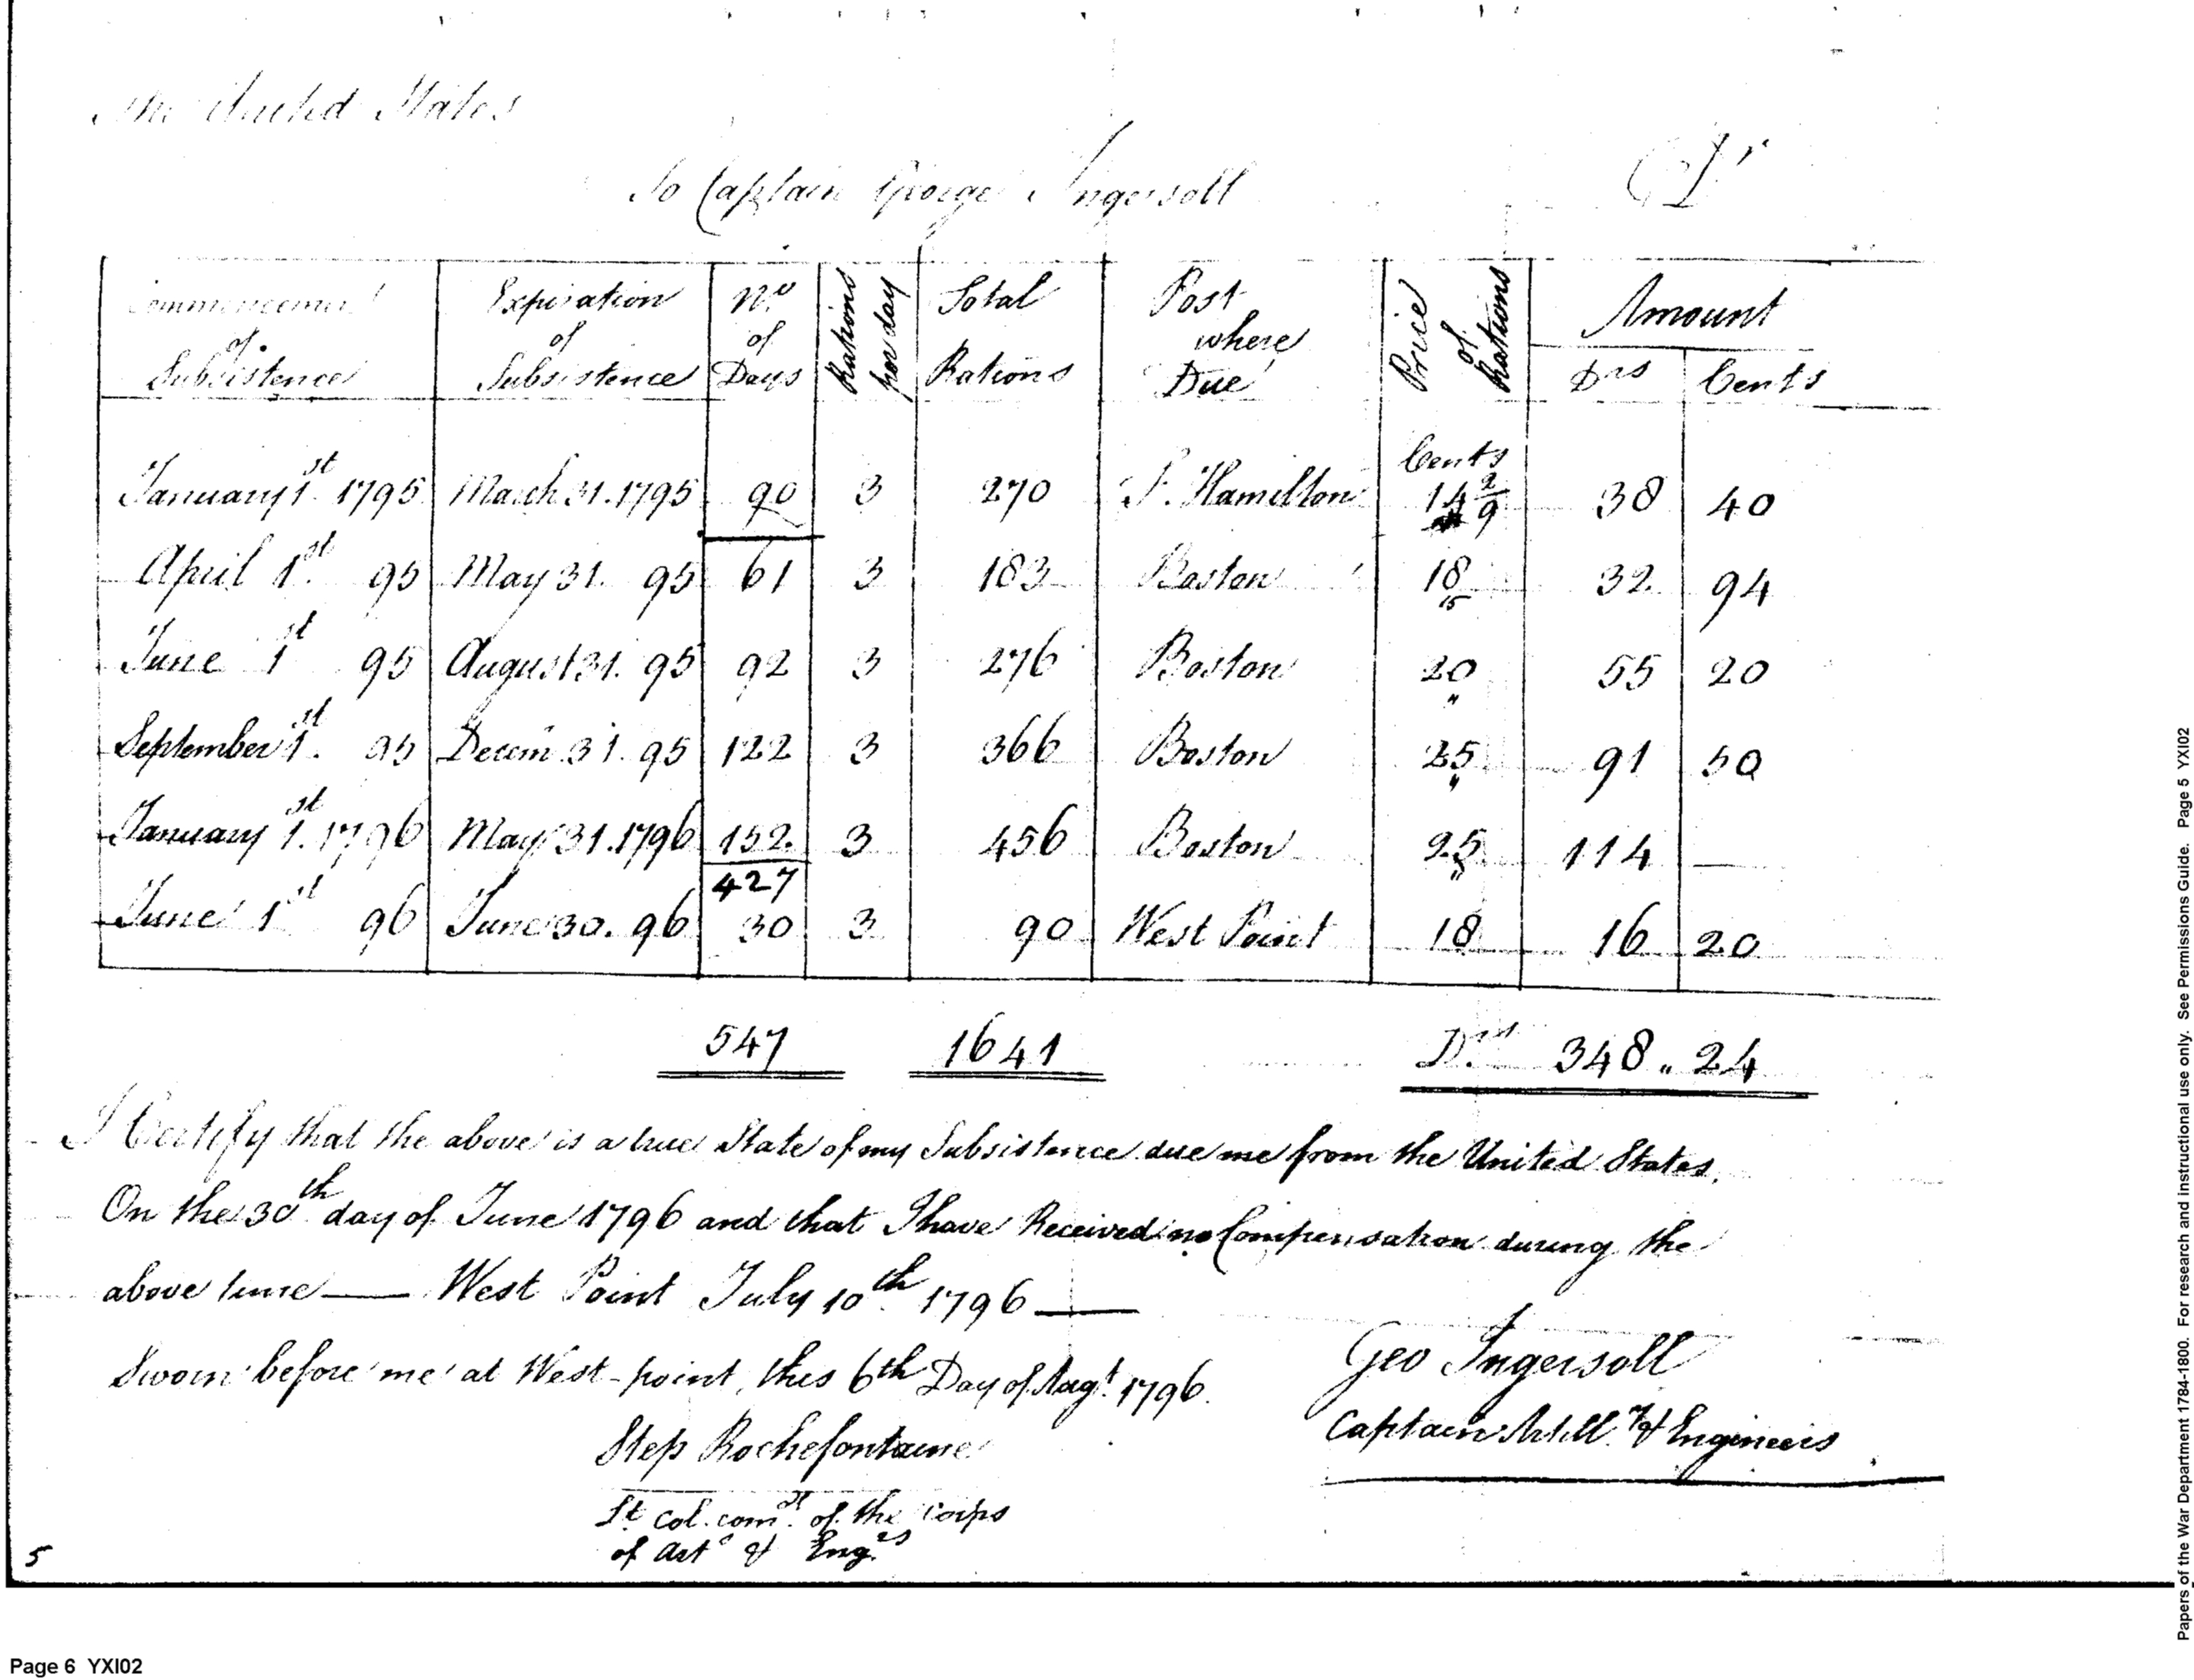 The United States
To Captain George Ingersoll Dr
Commencement of Subsistence | Expiration of Subsistence | No of Days | Rations per day | Total Rations | Post where Due | Price of Rations | Amount Drs Cents
Cents
January 1st 1795 | March 31. 1795 | 90 | 3 | 270 | F. Hamilton | 14 2/9 | 38 | 40
April 1st. 95 | May 31. 95 | 61 | 3 | 183 | Boston | 18 | 32 | 94
June 1st 95 | August 31. 95 | 92 | 3 | 276 | Boston | 20 " | 55 | 20
September 1st. 95 | Decem. 31. 95 | 122 | 3 | 366 | Boston | 25 " | 91 | 50
January 1st. 1796 | May 31. 1796 | 152. | 3 | 456 | Boston | 25 " | 114 | —
427
June 1st 96 | June 30. 96 | 30 | 3 | 90 | West Point | 18 | 16 | 20
547 1641 Drs 348 " 24
I Certify that the above is a true State of my Subsistence due me from the United States.
On the 30th day of June 1796 and that I have Received no Compensation during the
above time — West Point July 10th 1796 —
Sworn before me at West-point, this 6th Day of Augt. 1796.
Geo Ingersoll
Captain Artill.y & Engineers
Step Rochefontaine
Lt Col. comdt. of the Corps
of Arts & Engrs
5
Page 6 YXI02
Papers of the War Department 1784-1800. For research and instructional use only. See Permissions Guide. Page 5 YXI02